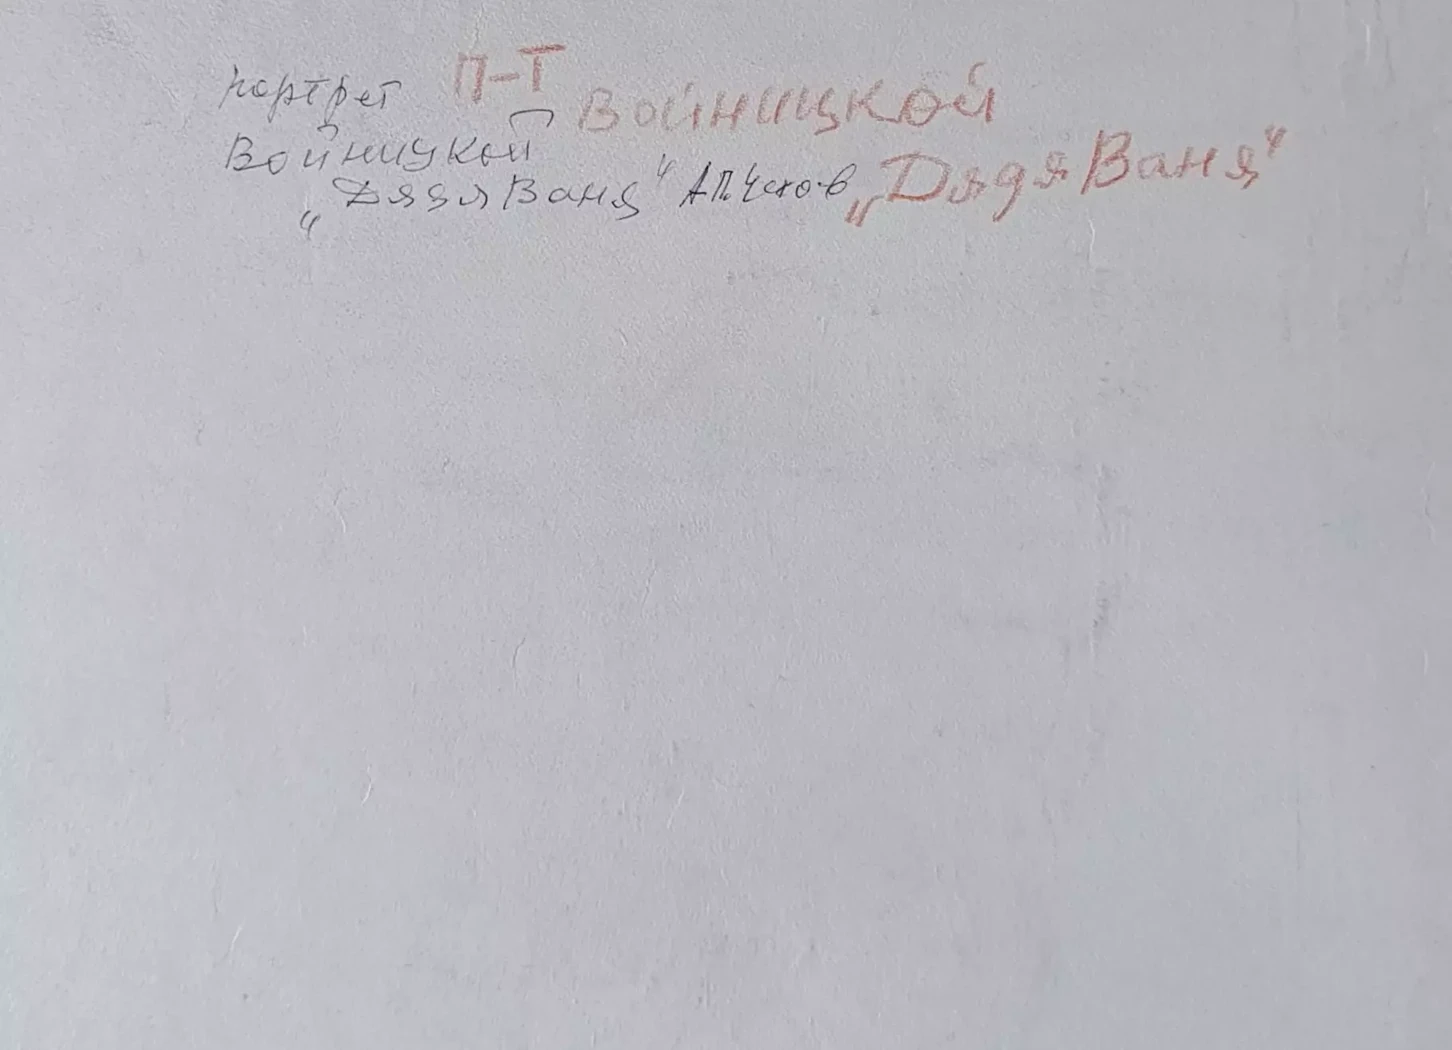 портрет
Войницкой
„Дядя Ваня“ А.П. Чехов
П-Т
Войницкой
„Дядя Ваня“